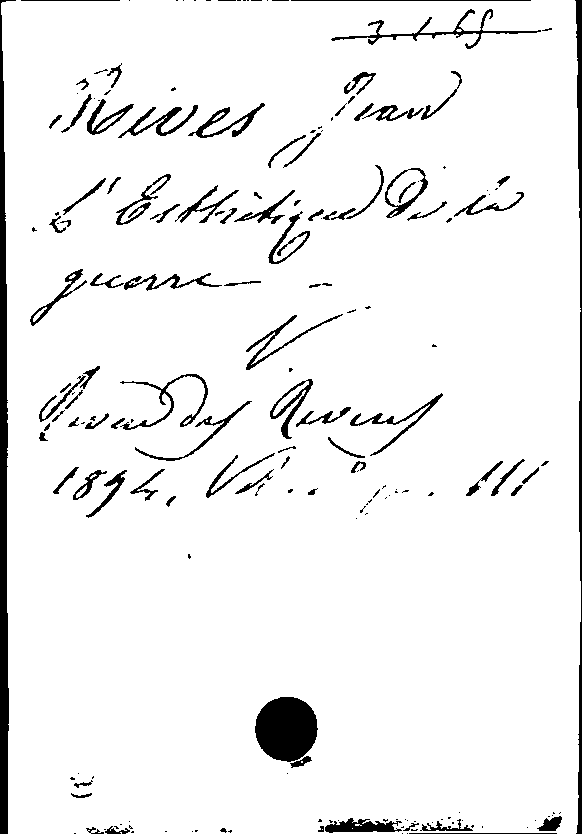 3.1.65
Rives Jean
L'Esthétique de la
guerre -
V
Revue des Revues
1894, p. 111